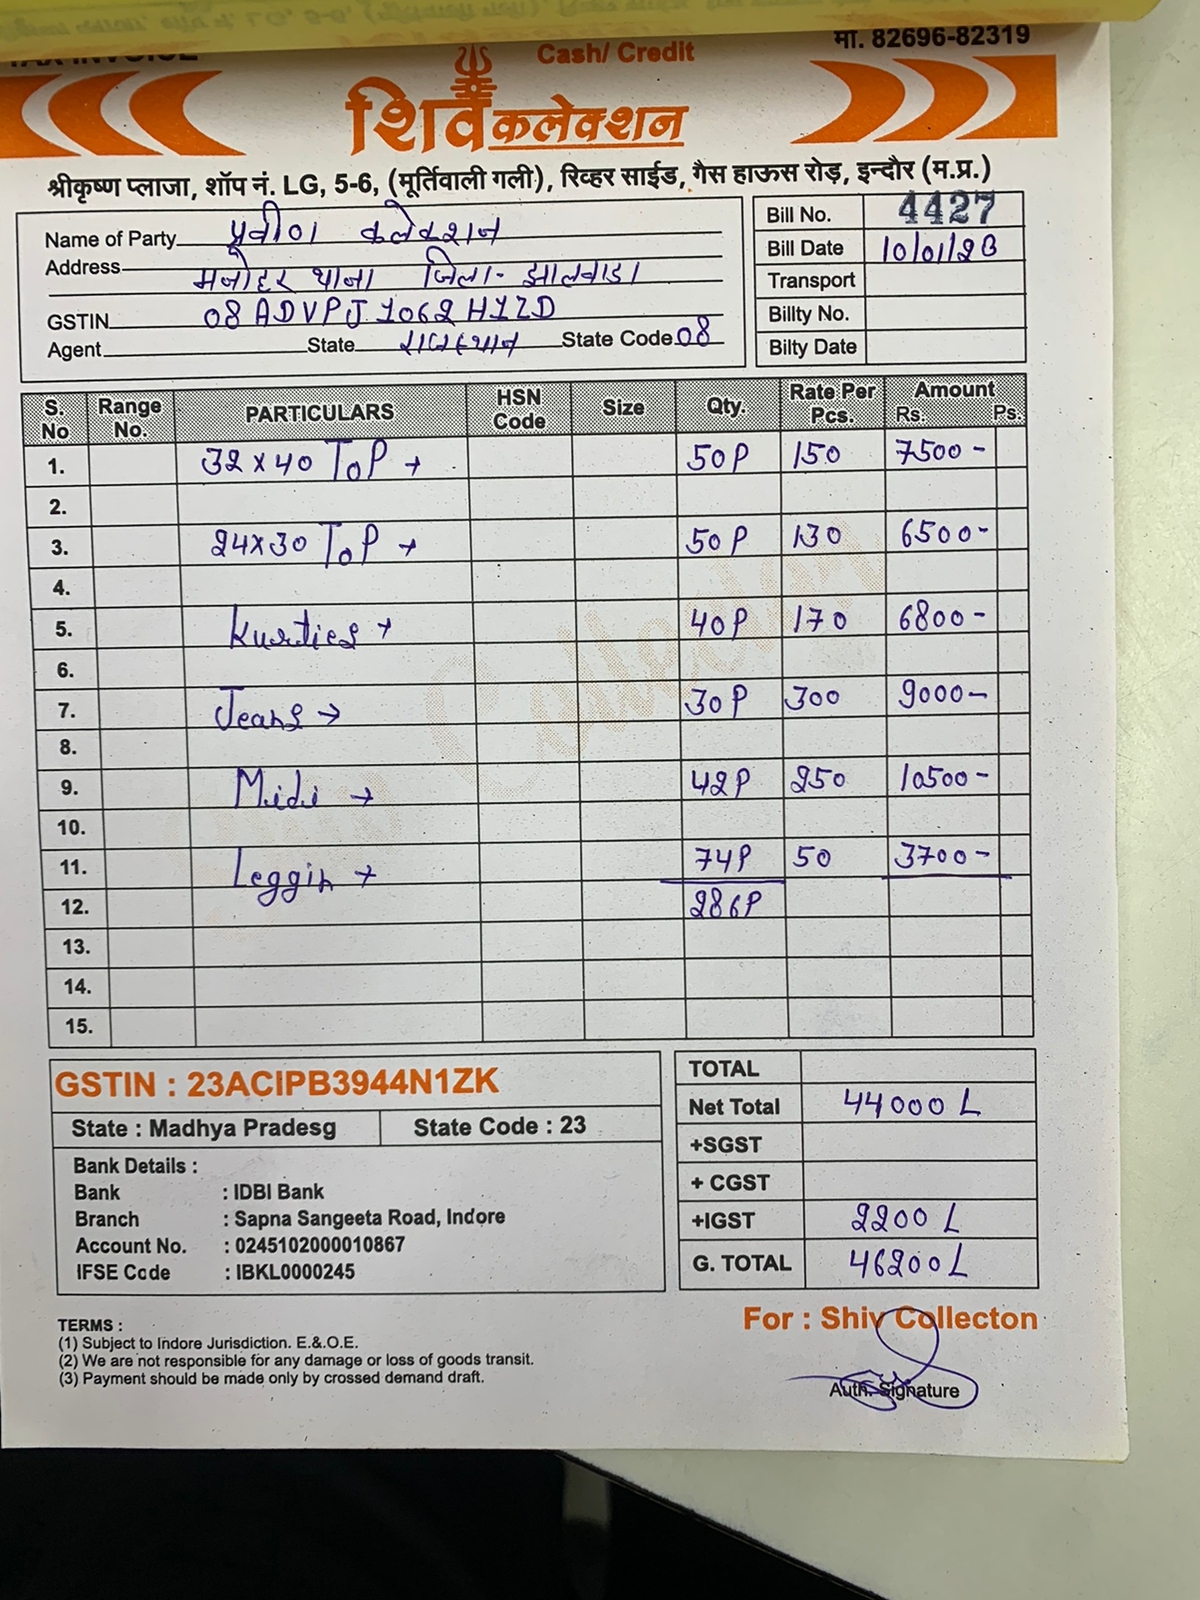 TAX INVOICE
Cash/ Credit
मा. 82696-82319
शिव कलेक्शन
श्रीकृष्ण प्लाजा, शॉप नं. LG, 5-6, (मूर्तिवाली गली), रिव्हर साईड, गैस हाऊस रोड़, इन्दौर (म.प्र.)
Name of Party प्रवीण कलेक्शन
Address मनोहर थाना जिला- झालवाडा
GSTIN 08ADVPJ1062H1ZD
Agent State राजस्थान State Code 08
Bill No. 4427
Bill Date 10/01/23
Transport
Billty No.
Bilty Date
S. No Range No. PARTICULARS HSN Code Size Qty. Rate Per Pcs. Amount Rs. Ps.
1. 32x40 ToP → 50P 150 7500-
2.
3. 24x30 ToP → 50P 130 6500-
4.
5. Kurties → 40P 170 6800-
6.
7. Jeans → 30P 300 9000-
8.
9. Midi → 42P 250 10500-
10.
11. Leggin → 74P 50 3700-
12. 286P
13.
14.
15.
GSTIN : 23ACIPB3944N1ZK
State : Madhya Pradesg State Code : 23
Bank Details :
Bank : IDBI Bank
Branch : Sapna Sangeeta Road, Indore
Account No. : 0245102000010867
IFSE Code : IBKL0000245
TOTAL
Net Total 44000
+SGST
+ CGST
+IGST 2200
G. TOTAL 46200
TERMS :
(1) Subject to Indore Jurisdiction. E.&.O.E.
(2) We are not responsible for any damage or loss of goods transit.
(3) Payment should be made only by crossed demand draft.
For : Shiv Collecton
Auth. Signature